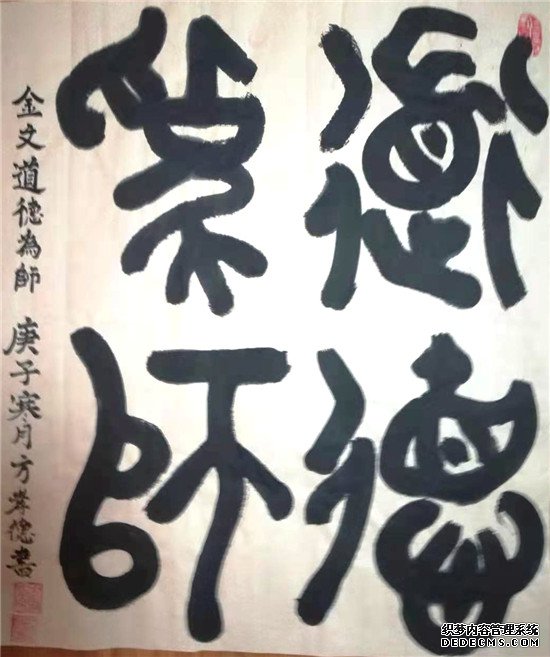 道德
為師
金文道德為師 庚子寒月方孝德書
织梦内容管理系统
DEDECMS.COM